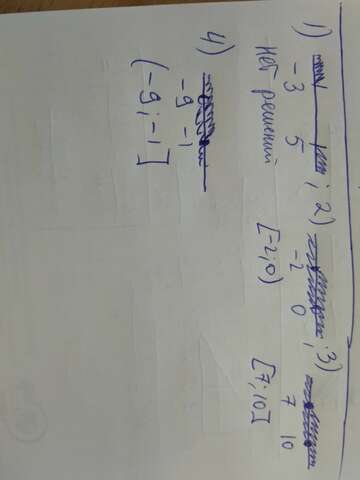 1) ; 2) ; 3)
-3 5 -2 0 7 10
Нет решений [-2;0) [7;10]
4)
-9 -1
(-9;-1]